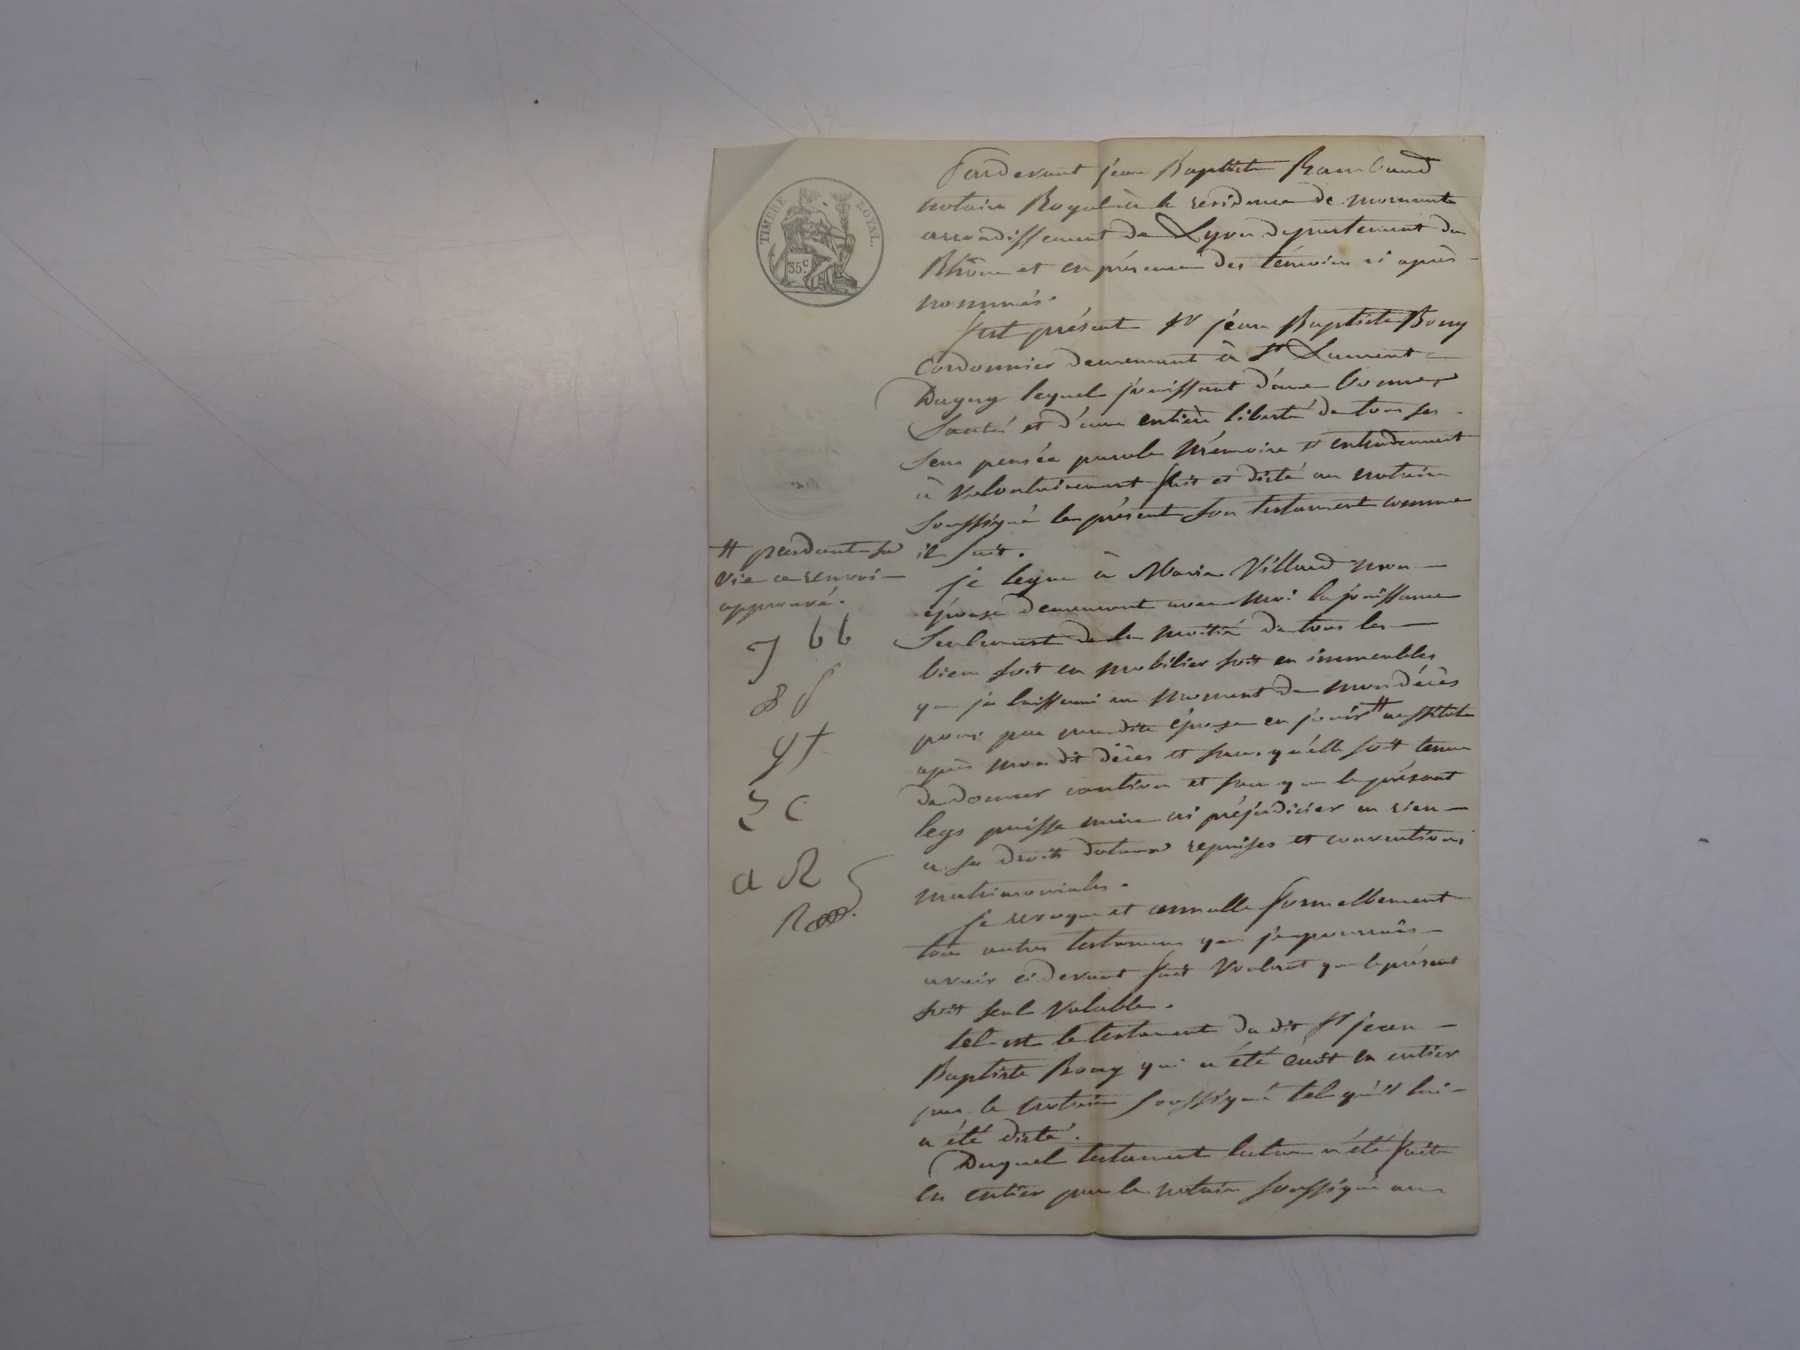 TIMBRE ROYAL.
35c
Pardevant jean Baptiste Rambaud
notaire Royal à la residence de mornant
arrondissement de Lyon departement du
Rhône et en présence des témoins ci après
nommés.
fut présent Sr jean Baptiste Bony
Cordonnier demeurant à St Laurent
Dagny lequel jouissant d'une bonne
Santé et d'une entière liberté de tous ses
sens pensée parole mémoire et entendement
à volontairement fait et dicté au notaire
soussigné le présent son testament comme
il suit.
je legue à Marie Villard mon
épouse demeurant avec moi la jouissance
Seulement de la moitié de tous les
bien soit en mobilier soit en immeubles
que je laisserai au moment de mon décès
pour par madite épouse en jouir # aussitôt
après mon dit décès et sans qu'elle soit tenue
de donner caution et sans que le présent
legs puisse nuire ni préjudicier en rien
a ses droits dotaux reprises et conventions
matrimoniales.
je revoque et annulle formellement
tous autres testamens que je pourrois
avoir cidevant fait voulant que le présent
soit seul valable.
tel est le testament du dit Sr jean
Baptiste Bony qui a été écrit en entier
par le notaire soussigné tel qu'il lui
a été dicté.
Duquel testament lecture a été faite
en entier par le notaire soussigné au
# pendant sa
vie ce renvoi
approuvé.
J bb
B f
y t
a R